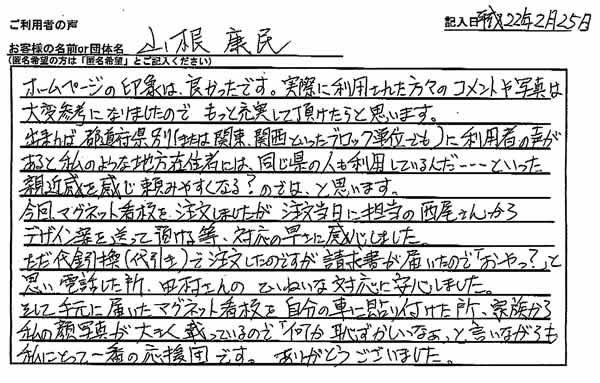 ご利用者の声
記入日 平成22年2月25日
お客様の名前or団体名 山根 康民
(匿名希望の方は「匿名希望」とご記入ください)
ホームページの印象は、良かったです。実際に利用された方々のコメントや写真は
大変参考になりましたので もっと充実して頂けたらと思います。
出来れば 都道府県別(または関東、関西といったブロック単位でも)に利用者の声が
あると私のような地方在住者には、同じ県の人も利用しているんだ---といった
親近感を感じ頼みやすくなる?のでは、と思います。
今回、マグネット看板を注文しましたが 注文当日に担当の西尾さんから
デザイン案を送って頂ける等、対応の早さに感心しました。
ただ代金引換(代引き)で注文したのですが請求書が届いたので「おやっ?」と
思い電話した所、田村さんの ていねいな対応に安心しました。
そして手元に届いたマグネット看板を自分の車に貼り付けた所、家族から
私の顔写真が大きく載っているので「何か恥ずかしいなぁ」と言いながらも
私にとって一番の応援団です。 ありがとうございました。